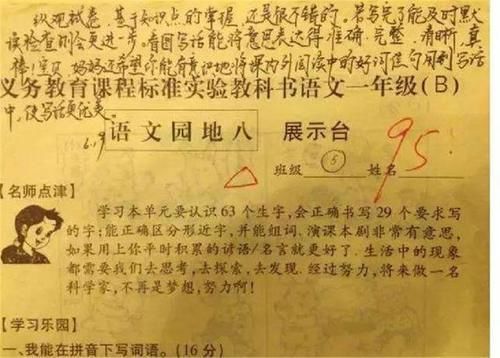 纵观试卷，基于知识点的掌握，还是很不错的。若写完了能及时默
读检查则会更进一步。看图写话能将意思表达得准确、完整、清晰，真
棒！宝贝，妈妈还希望你能有意识地将课内外阅读中的好词佳句用到写话
义务教育课程标准实验教科书语文一年级(B)
中，使写话更优美。
6.19
语文园地八 展示台
95
班级 ⑤ 姓名
【名师点津】
学习本单元要认识63个生字，会正确书写29个要求写
的字；能正确区分形近字，并能组词．演课本剧非常有意思，
如果用上你平时积累的谚语/名言就更好了．生活中的现象
都需要我们去思考，去探索，去发现．经过努力，将来做一名
科学家，不再是梦想，努力啊！
【学习乐园】
一、我能在拼音下写词语。(16分)